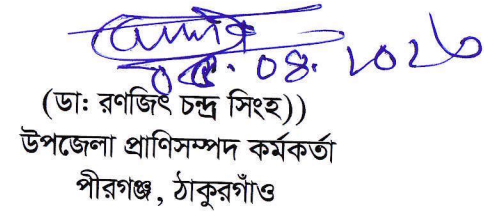 (ডাঃ রণজিৎ চন্দ্র সিংহ))
উপজেলা প্রাণিসম্পদ কর্মকর্তা
পীরগঞ্জ, ঠাকুরগাঁও